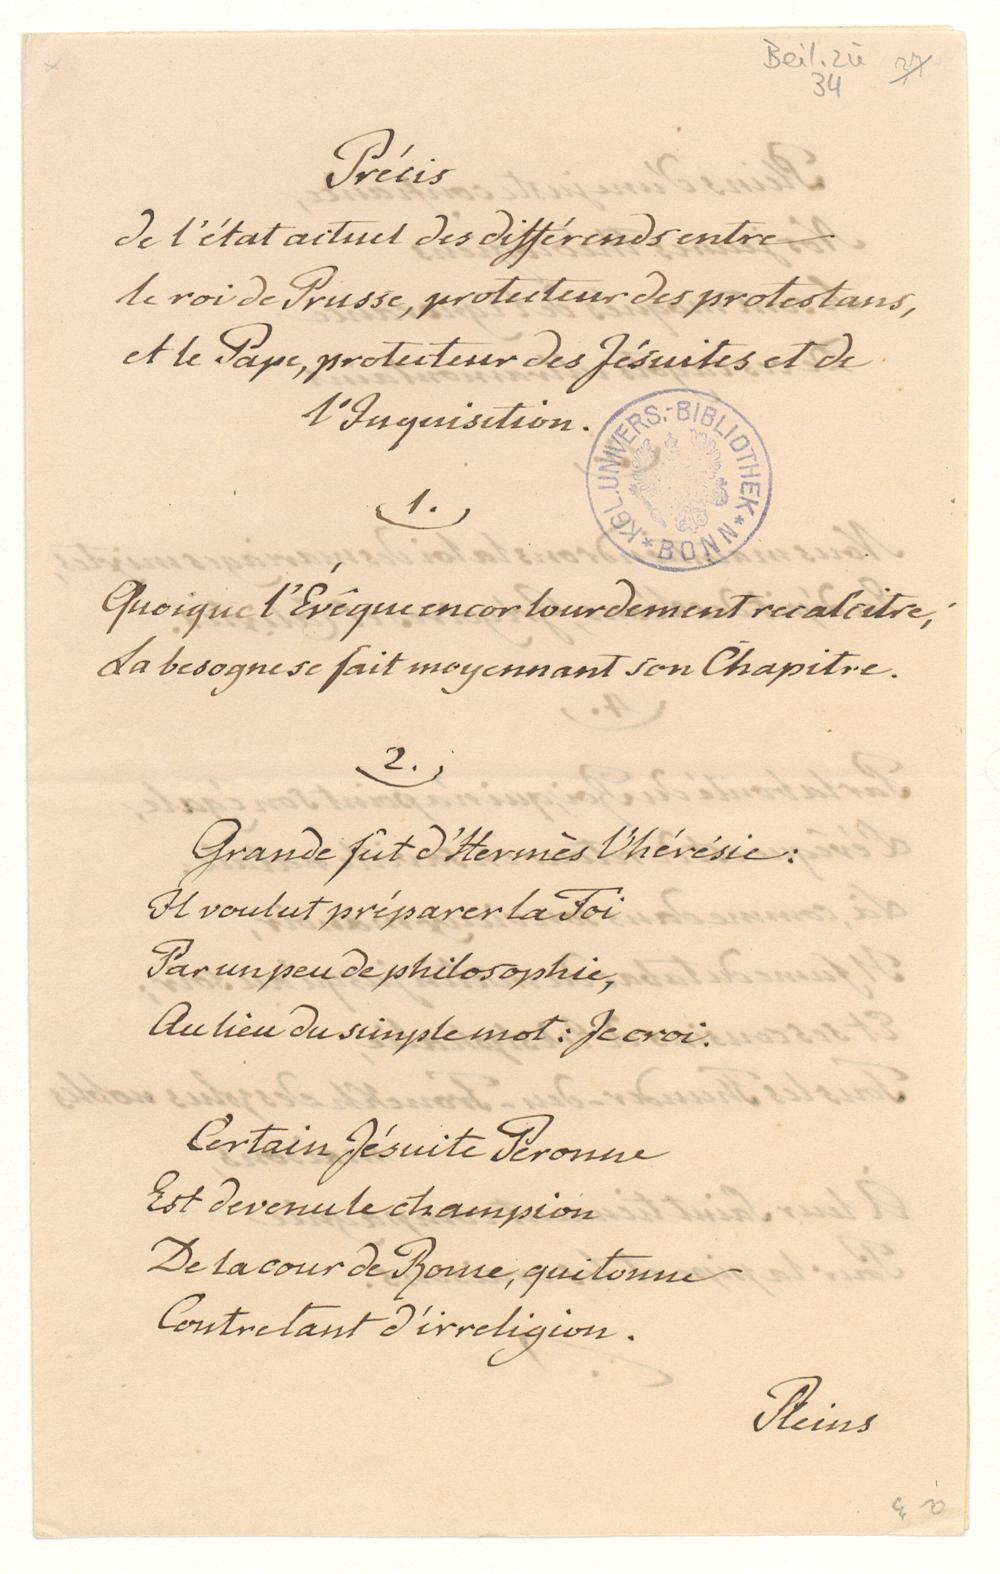 Beil. zu
34
37
Précis
de l'état actuel des différends entre
le roi de Prusse, protecteur des protestans,
et le Pape, protecteur des Jésuites et de
l'Inquisition.
KGL. UNIVERS.-BIBLIOTHEK * BONN *
1.
Quoique l'Évêque encor lourdement recalcitre,
La besogne se fait moyennant son Chapitre.
2.
Grande fût d'Hermès l'hérésie:
Il voulut préparer la Foi
Par un peu de philosophie,
Au lieu du simple mot: Je croi.
Certain Jésuite Peronne
Est devenu le champion
De la cour de Rome, qui tonne
Contre tant d'irreligion.
Pleins